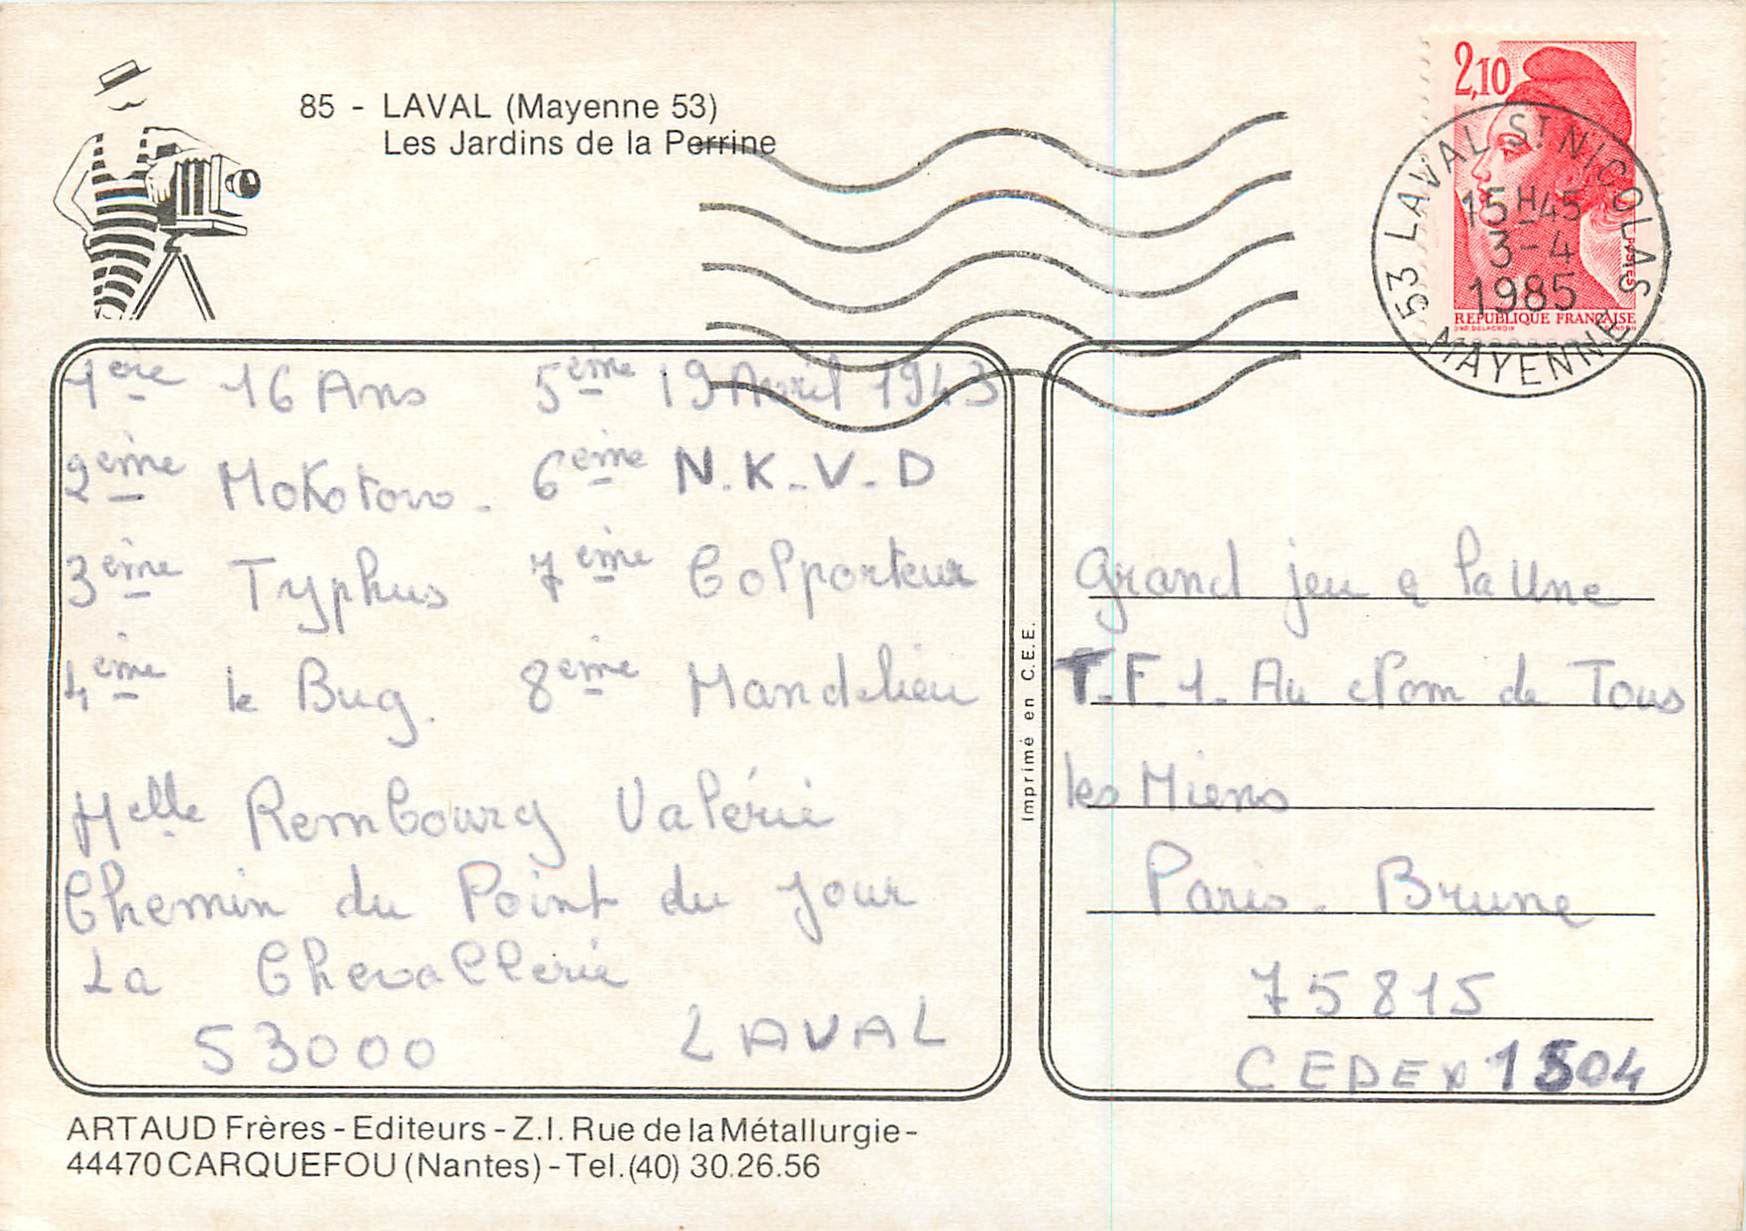 85 - LAVAL (Mayenne 53)
Les Jardins de la Perrine
2,10
POSTES
REPUBLIQUE FRANÇAISE
53 LAVAL ST NICOLAS
15H45
3-4
1985
MAYENNE
1ère 16 Ans 5ème 19 Avril 1943
2ème Mokotow. 6ème N.K.V.D
3ème Typhus 7ème Colporteur
4ème le Bug. 8ème Mandelieu
Melle Rembourg Valérie
Chemin du Point du Jour
La Chevallerie
53000 LAVAL
Imprimé en C.E.E.
Grand jeu a la Une
T.F.1. Au Nom de Tous
les Miens
Paris. Brune
75815
CEDEX 1504
ARTAUD Frères - Editeurs - Z.I. Rue de la Métallurgie -
44470 CARQUEFOU (Nantes) - Tel. (40) 30.26.56